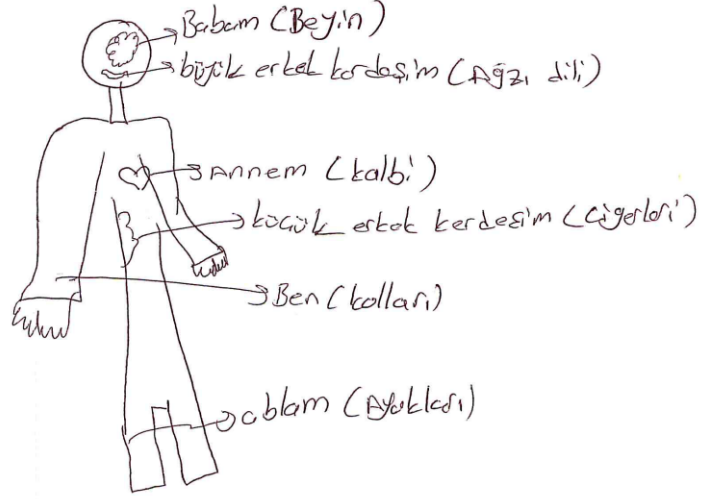 Babam (Beyin)
büyük erkek kardeşim (Ağzı dili)
Annem (kalbi)
küçük erkek kardeşim (Ciğerleri)
Ben (kolları)
ablam (Ayakları)